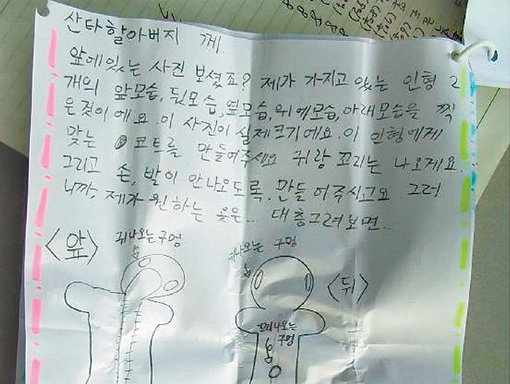 산타할아버지 께.
앞에있는 사진 보셨죠? 제가 가지고 있는 인형 2
개의 앞모습, 뒷모습, 옆모습, 위에모습, 아래모습을 찍
은것이에요. 이 사진이 실제크기에요. 이 인형에게
맞는 코트를 만들어주세요 귀랑 꼬리는 나오게요.
그리고 손, 발이 안나오도록. 만들어주시고요 그러
니까, 제가 원하는 옷은.. 대충그려보면..
<앞>
귀나오는 구멍
귀나오는 구멍
<뒤>
꼬리나오는
구멍